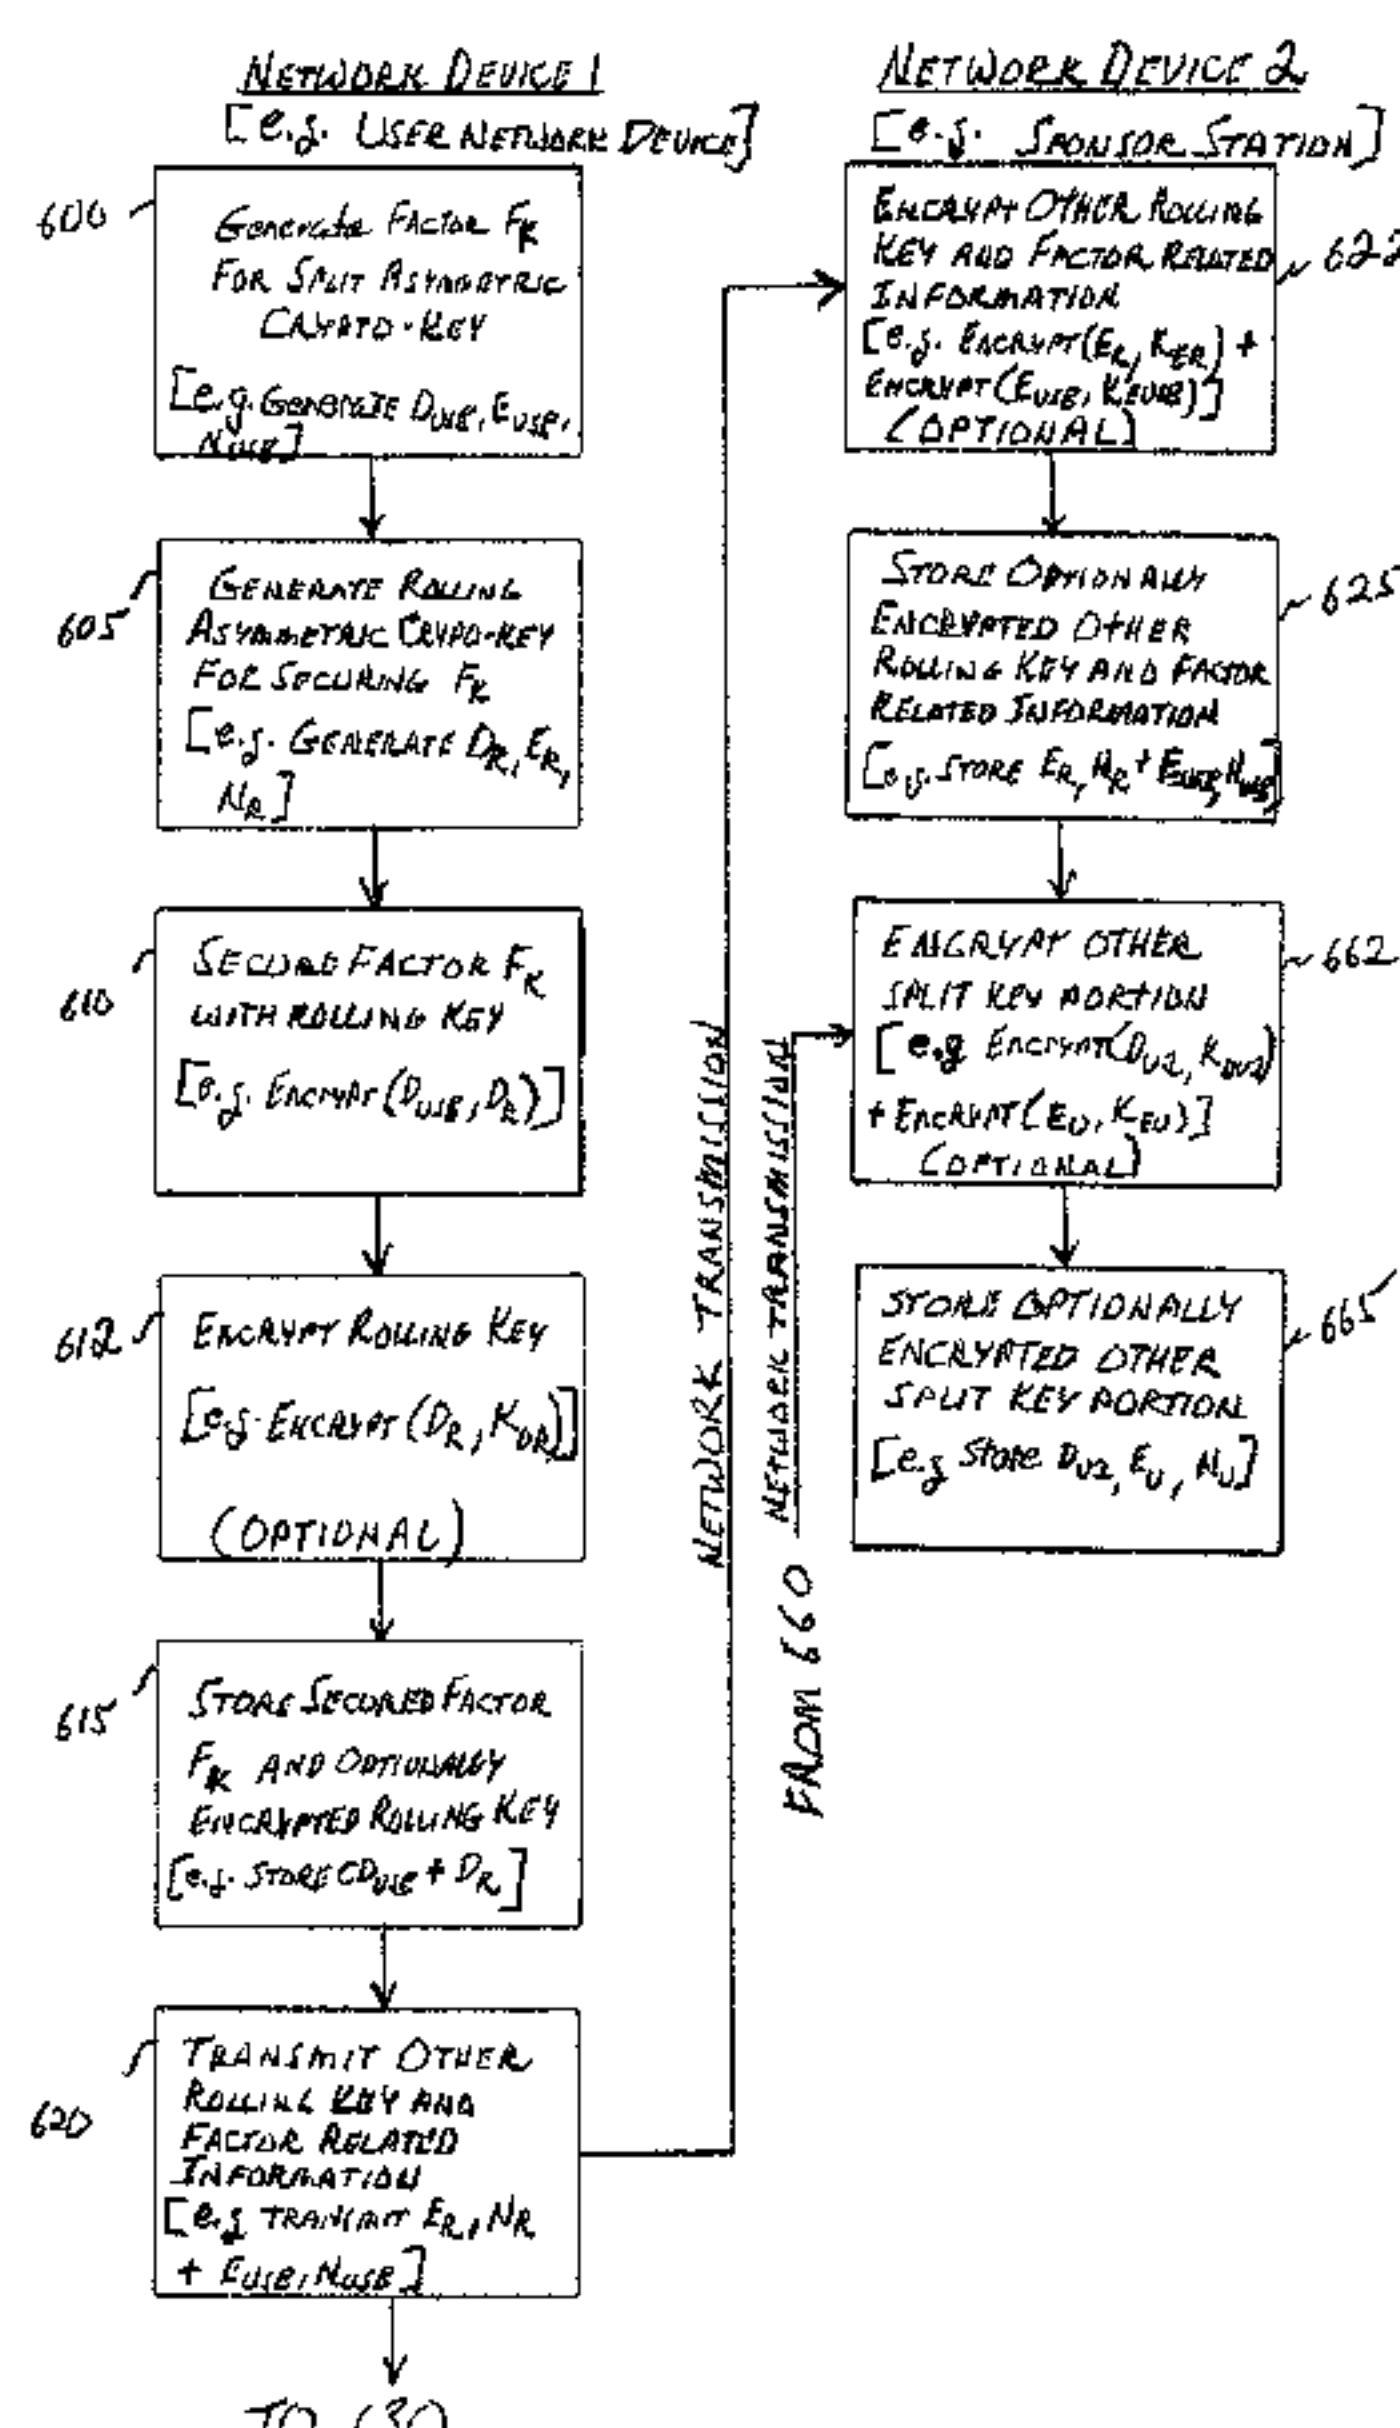 NETWORK DEVICE 1
[e.g. USER NETWORK DEVICE]
600
Generate FACTOR FK
FOR SPLIT ASYMMETRIC
CRYPTO-KEY
[e.g. GENERATE DUSB, EUSB,
NUSB]
605
GENERATE ROLLING
ASYMMETRIC CRYPO-KEY
FOR SECURING FK
[e.g. GENERATE DR, ER,
NR]
610
SECURE FACTOR FK
WITH ROLLING KEY
[e.g. ENCRYPT (DUSB, DR)]
612
ENCRYPT ROLLING KEY
[e.g. ENCRYPT (DR, KDR)]
(OPTIONAL)
615
STORE SECURED FACTOR
FK AND OPTIONALLY
ENCRYPTED ROLLING KEY
[e.g. STORE CDUSB + DR]
620
TRANSMIT OTHER
ROLLING KEY AND
FACTOR RELATED
INFORMATION
[e.g TRANSMIT ER, NR
+ EUSB, NUSB]
TO 630
NETWORK TRANSMISSION
NETWORK TRANSMISSION
FROM 660
NETWORK DEVICE 2
[e.g. SPONSOR STATION]
622
ENCRYPT OTHER ROLLING
KEY AND FACTOR RELATED
INFORMATION
[e.g. ENCRYPT(ER, KER) +
ENCRYPT(EUSB, KEUSB)]
(OPTIONAL)
625
STORE OPTIONALLY
ENCRYPTED OTHER
ROLLING KEY AND FACTOR
RELATED INFORMATION
[e.g. STORE ER, NR + EUSB, NUSB]
662
ENCRYPT OTHER
SPLIT KEY PORTION
[e.g ENCRYPT(DU2, KDU2)
+ ENCRYPT(EU, KEU)]
(OPTIONAL)
665
STORE OPTIONALLY
ENCRYPTED OTHER
SPLIT KEY PORTION
[e.g Store DU2, EU, NU]